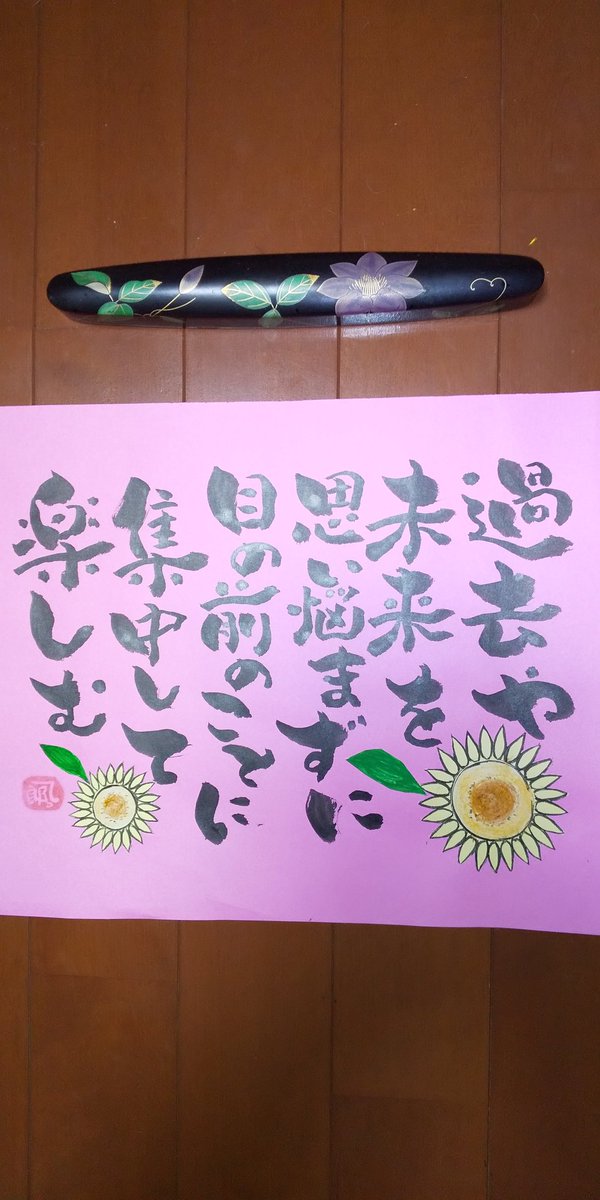 過去や
未来を
思い悩まずに
目の前のことに
集中して
楽しむ